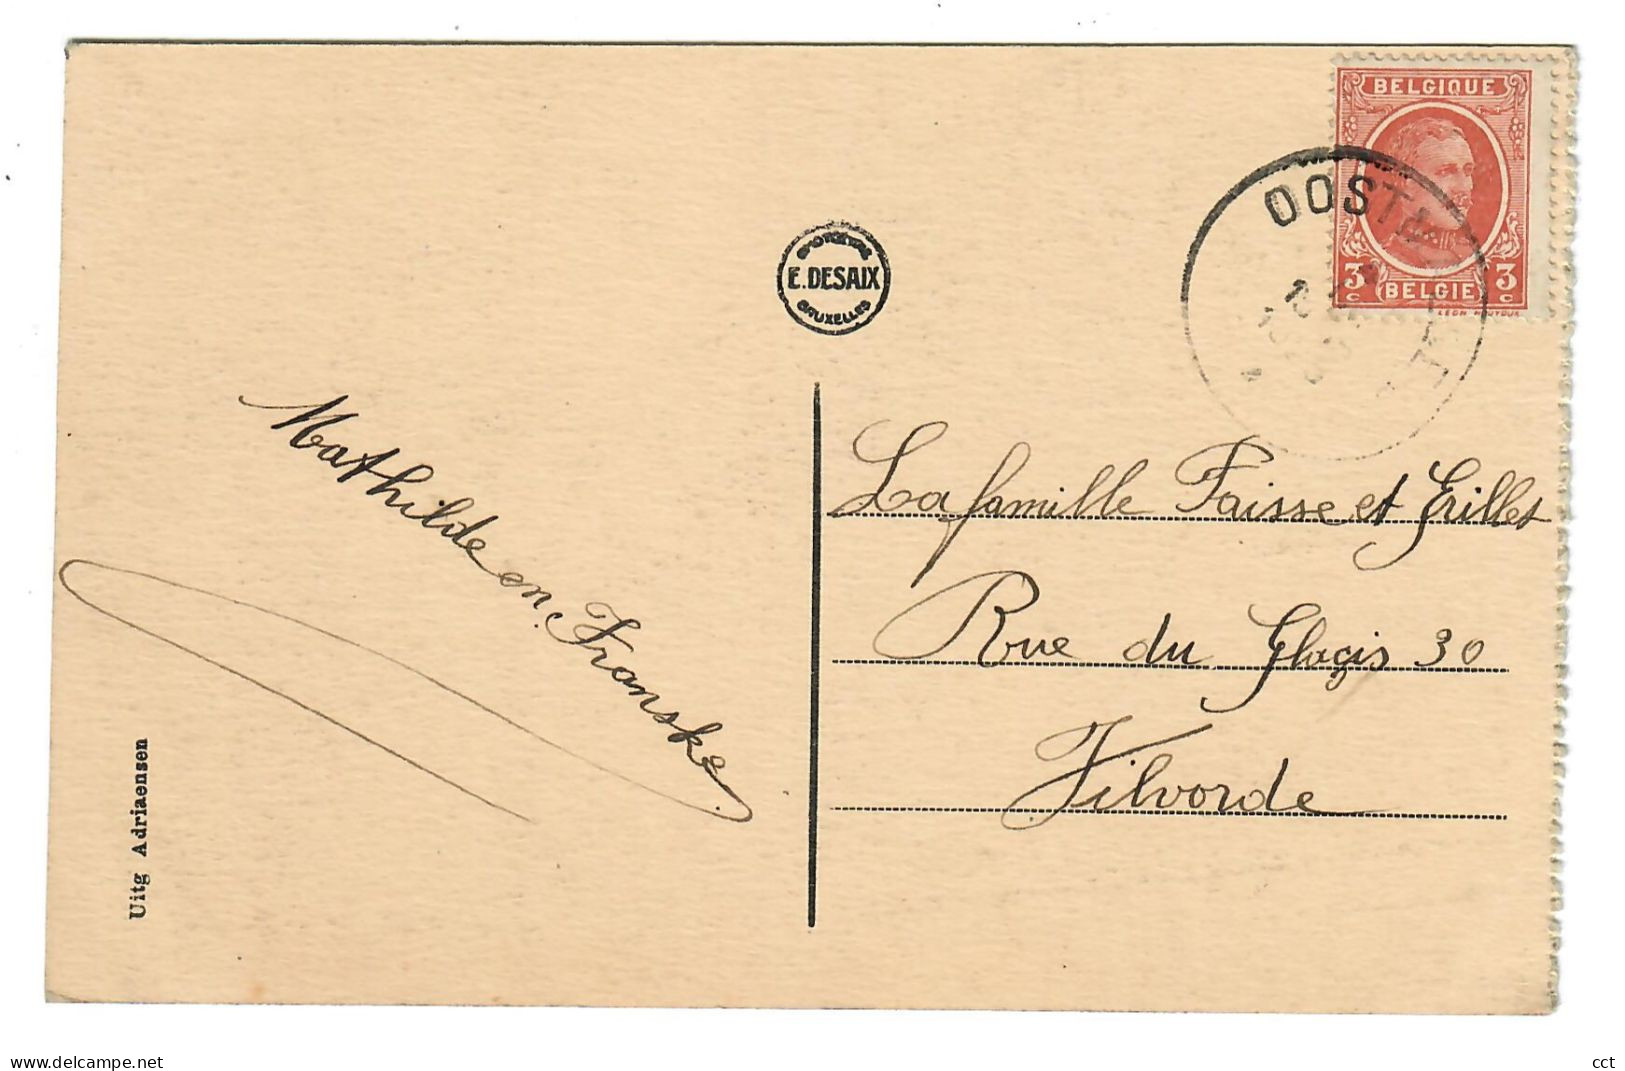 BELGIQUE
3 c
3 c
BELGIE
E. DESAIX
BRUXELLES
Mathilde en Franske.
La famille Faisse et Grilles
Rue du Glaçis 30
Vilvorde
Uitg Adriaensen
delcampe.net
cct